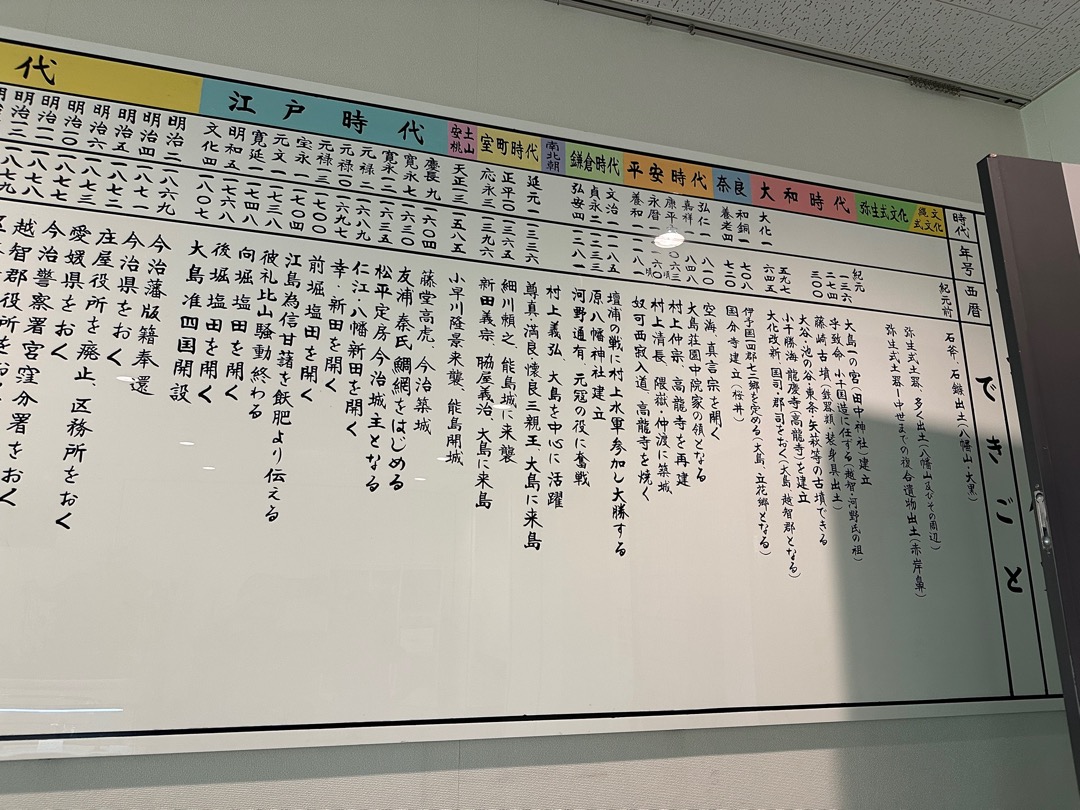 時代
年号
西暦
できごと
縄文式文化
弥生式文化
大和時代
奈良
平安時代
鎌倉時代
南北朝
室町時代
安土桃山
江戸時代
代
紀元前 石斧・石鏃出土(八幡山・大黒)
弥生式土器、多く出土(八幡山及びその周辺)
弥生式土器ー中世までの複合遺物出土(赤岸鼻)
紀元一三六 大島一の宮(田中神社)建立
二七四 乎致命、小千国造に任する(越智・河野氏の祖)
三〇〇 藤崎古墳(鉄器類・装身具出土)
大谷・池の谷・東条・矢萩等の古墳できる
五九七 小千勝海、龍慶寺(高龍寺)を建立
大化一 六四五 大化改新、国司・郡司をおく(大島、越智郡となる)
和銅一 七〇八 伊予国四郡七三郷を定める(大島、立花郷となる)
養老四 七二〇 国分寺建立(桜井)
弘仁一 八一〇 空海、真言宗を開く
嘉祥一 八四八 大島荘園中院家の領となる
康平 一〇六三頃 村上仲宗、高龍寺を再建
永暦一 一一六〇頃 村上清長、隈嶽・仲渡に築城
養和一 一一八一 奴可西寂入道、高龍寺を焼く
文治一 一一八五 壇浦の戦に村上水軍参加し大勝する
貞永二 一二三三 原八幡神社建立
弘安四 一二八一 河野通有、元寇の役に奮戦
村上義弘、大島を中心に活躍
延元一 一三三六 尊真・満良・懐良三親王、大島に来島
正平二〇 一三六五 細川頼之、能島城に来襲
応永三 一三九六 新田義宗、脇屋義治、大島に来島
天正一三 一五八五 小早川隆景来襲、能島開城
慶長九 一六〇四 藤堂高虎、今治築城
寛永七 一六三〇 友浦秦氏鯛網をはじめる
寛永一二 一六三五 松平定房今治城主となる
元禄二 一六八九 仁江・八幡新田を開く
元禄一〇 一六九七 幸・新田を開く
元禄一三 一七〇〇 前堀塩田を開く
宝永 江島為信甘藷を飫肥より伝える
元文 一七三八 彼礼比山騒動終わる
寛延一 一七四八 向堀塩田を開く
明和五 一七六八 後堀塩田を開く
文化四 一八〇七 大島准四国開設
明治二 一八六九 今治藩版籍奉還
明治四 一八七一 今治県をおく
明治五 一八七二 庄屋役所を廃止、区務所をおく
明治六 一八七三 愛媛県をおく
明治一〇 一八七七 今治警察署宮窪分署をおく
明治一一 一八七八 越智郡役所をおく
明治一三 一八七九